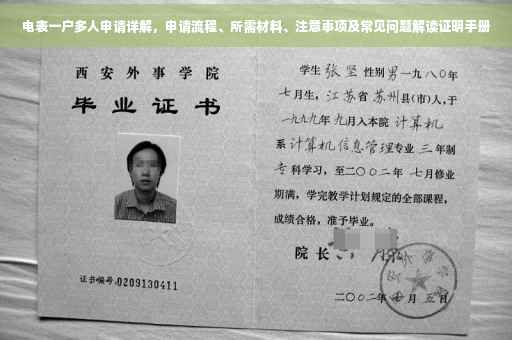 电表一户多人申请详解，申请流程、所需材料、注意事项及常见问题解读证明手册
西安外事学院
毕业证书
证书编号:0209130411
学生张坚性别男一九八〇年
七月生,江苏省苏州县(市)人,于
一九九九年九月入本院计算机
系计算机信息管理专业三年制
专科学习,至二〇〇二年七月修业
期满,学完教学计划规定的全部课程,
成绩合格,准予毕业。
院长
二〇〇二年七月五日